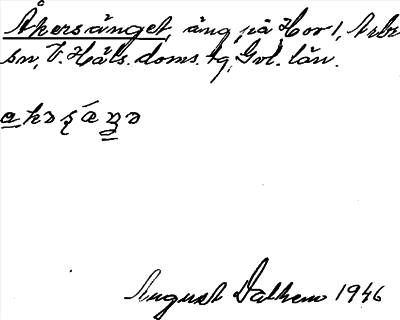 Åkersänget, äng på Hov 1, Arbr
sn, V. Häls. doms. tg, Gvl. län.
August Dalhem 1946